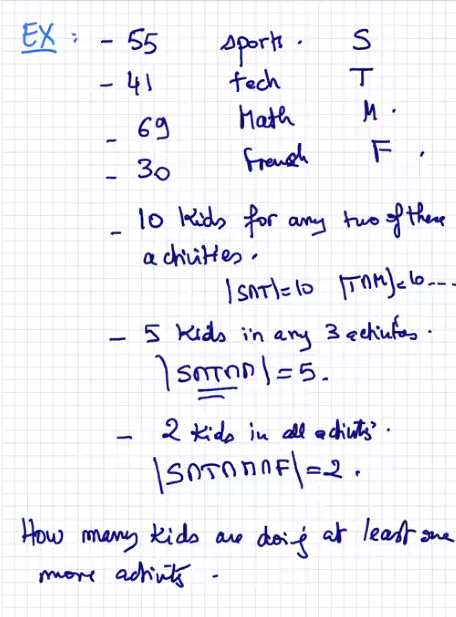 EX : - 55 sports . S
- 41 tech T
- 69 Math M .
- 30 french F .
- 10 kids for any two of these
activities .
|S∩T|=10 |T∩M|=10 ---
- 5 kids in any 3 activites .
|S∩T∩M| = 5 .
- 2 kids in all activits .
|S∩T∩M∩F| = 2 .
How many kids are doing at least one
more activits .